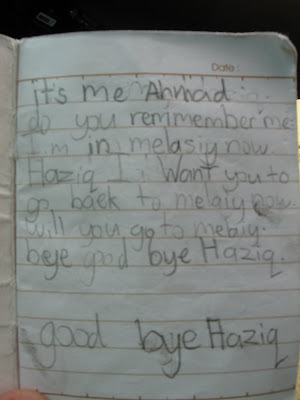 Date:
it's me Ahmad
do you remmember me
I'm in melasiy now
Haziq I want you to
go back to melaiy now.
will you go to melaiy.
beye good bye Haziq.
good bye Haziq